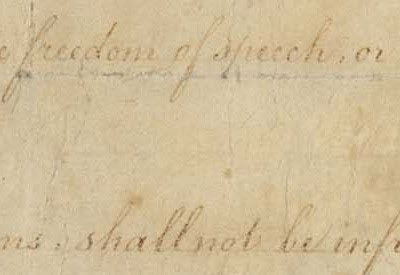 e freedom of speech, or
ms, shall not be infr